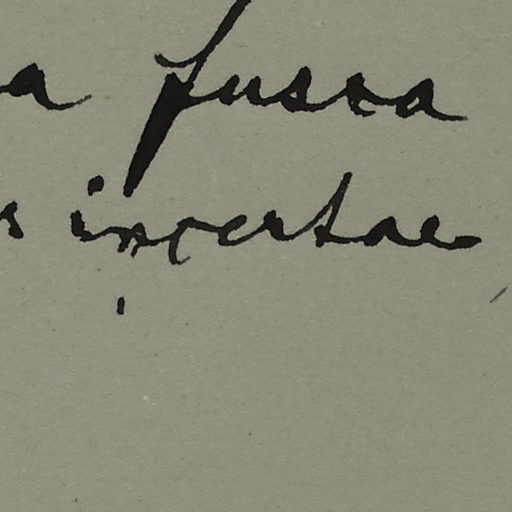 a fusca
s incertae